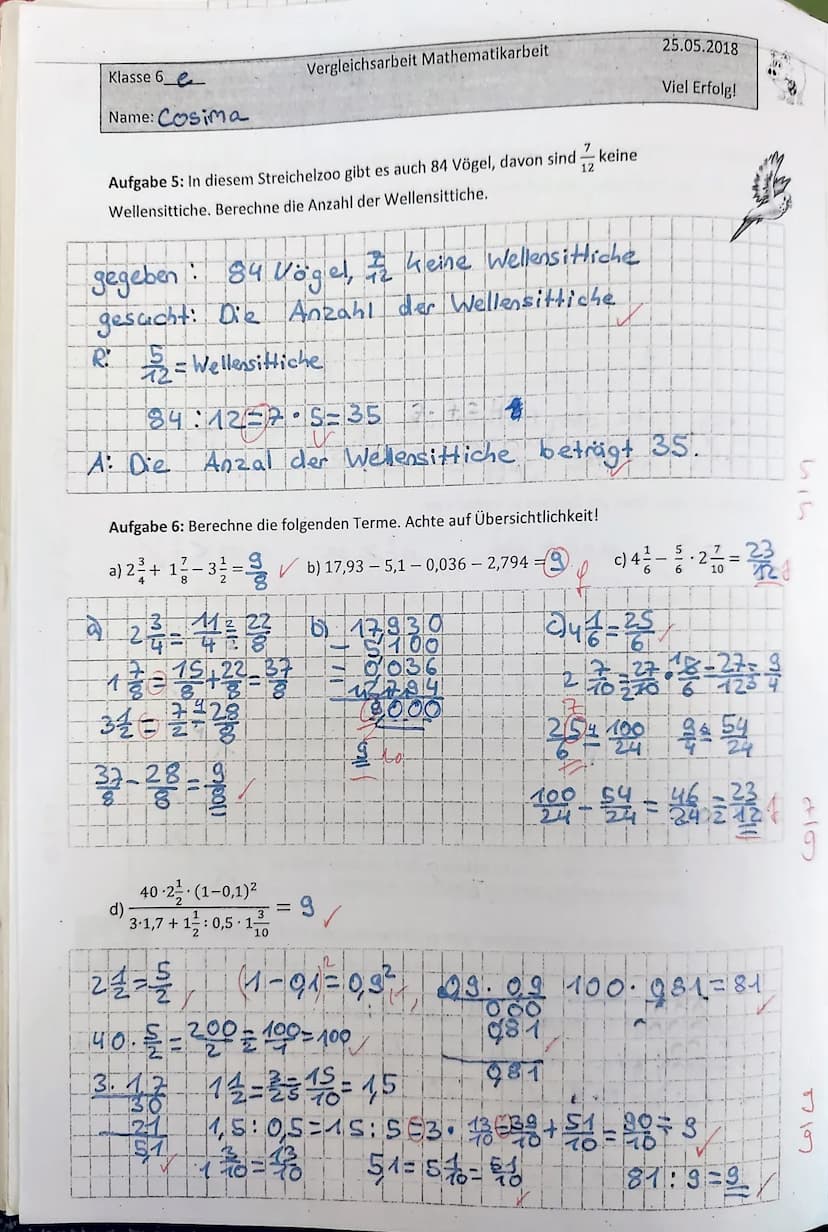 Klasse 6 e
Vergleichsarbeit Mathematikarbeit
25.05.2018
Name: Cosima
Viel Erfolg!
Aufgabe 5: In diesem Streichelzoo gibt es auch 84 Vögel, davon sind 7/12 keine
Wellensittiche. Berechne die Anzahl der Wellensittiche.
gegeben: 84 Vögel, 7/12 keine Wellensittiche
gesucht: Die Anzahl der Wellensittiche
R: 5/12 = Wellensittiche
84 : 12 = 7 · 5 = 35
A: Die Anzal der Wellensittiche beträgt 35.
5/5
Aufgabe 6: Berechne die folgenden Terme. Achte auf Übersichtlichkeit!
a) 2 3/4 + 1 7/8 − 3 1/2 = 9/8 b) 17,93 − 5,1 − 0,036 − 2,794 = 9 f c) 4 1/6 − 5/6 · 2 7/10 = 23/12
a) 2 3/4 = 11/4 = 22/8
1 7/8 = 15/8 + 22/8 = 37/8
3 1/2 = 7/2 = 28/8
37/8 - 28/8 = 9/8
b) 17,930
- 5,100
- 0,036
9,000
9
10
c) 4 1/6 = 25/6
25/6 = 100/24 9/4 = 54/24
100/24 - 54/24 = 46/24 = 23/12
7/9
d) 40 · 2 1/2 · (1−0,1)² / 3·1,7 + 1 1/2 : 0,5 · 1 3/10 = 9
2 1/2 = 5/2 (1-0,1)² = 0,9² 0,9 · 0,9 100 · 0,81 = 81
000
081
0,81
40 · 5/2 = 200/2 = 100/1 = 100
3 · 1,7
30
21
5,1
1,5 : 0,5 = 15 : 5 = 3 · 13/10 = 39/10 + 51/10 = 90/10 = 9
1 3/10 = 13/10 5,1 = 5 1/10 = 51/10 81 : 9 = 9
9/9